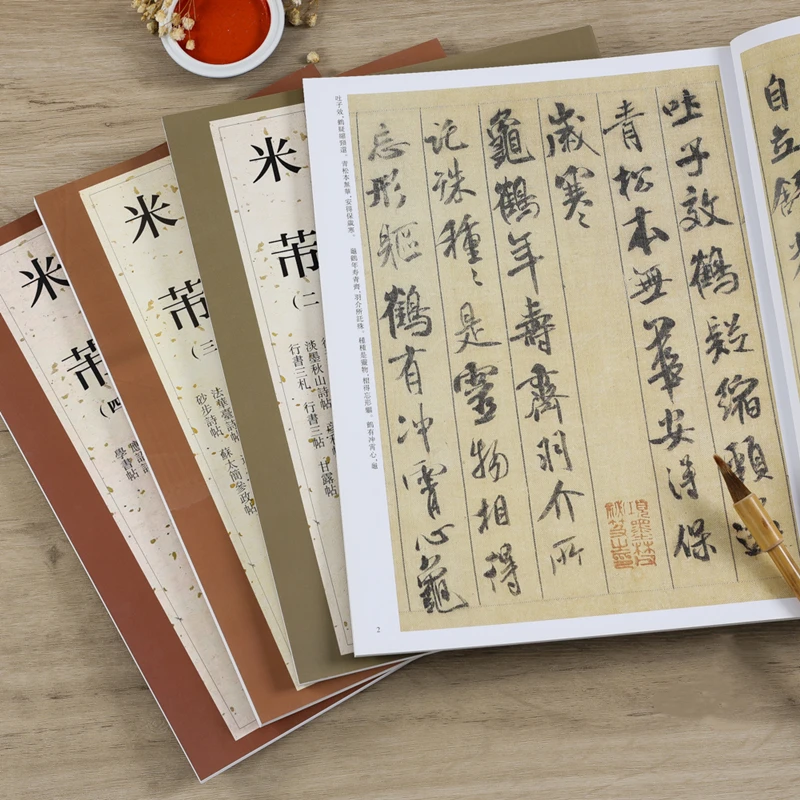 自立舒光
吐子效鶴疑縮頸
青松本無華安得保
歲寒〻
龜鶴年壽齊羽介所
託殊種〻是靈物相得
忘形軀鶴有沖霄心龜
項墨林父
秘笈之印
吐子效,鶴疑縮頸還。青松本無華,安得保歲寒。 龜鶴年壽齊,羽介所託殊。種種是靈物,相得忘形軀。鶴有沖霄心,龜
2
米芾
(二
淡墨秋山詩帖
行書三札 行書三帖 甘露帖
米芾
(三
法華臺詩帖
砂步詩帖 蘇太簡參政帖
米芾
(四
學書帖